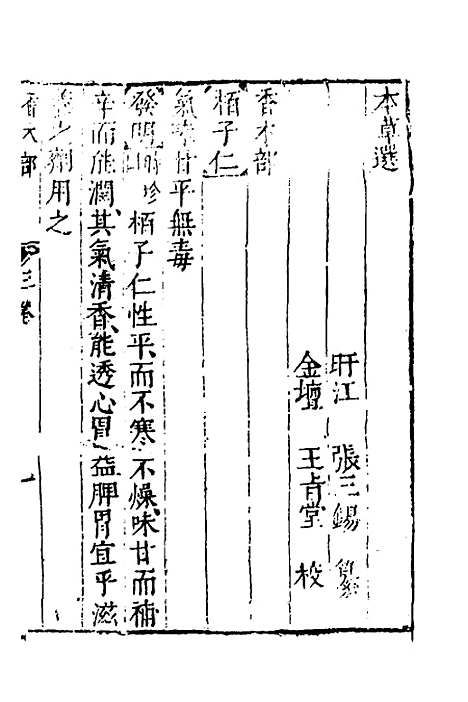 本草選
盱江 張三錫 纂
金壇 王肯堂 校
香木部
栢子仁
氣味甘平無毒
發明時珍栢子仁性平、而不寒、不燥、味甘而補
辛而能潤、其氣清香、能透心胃、益脾胃宜乎滋
養之劑用之
香木部 三卷 一